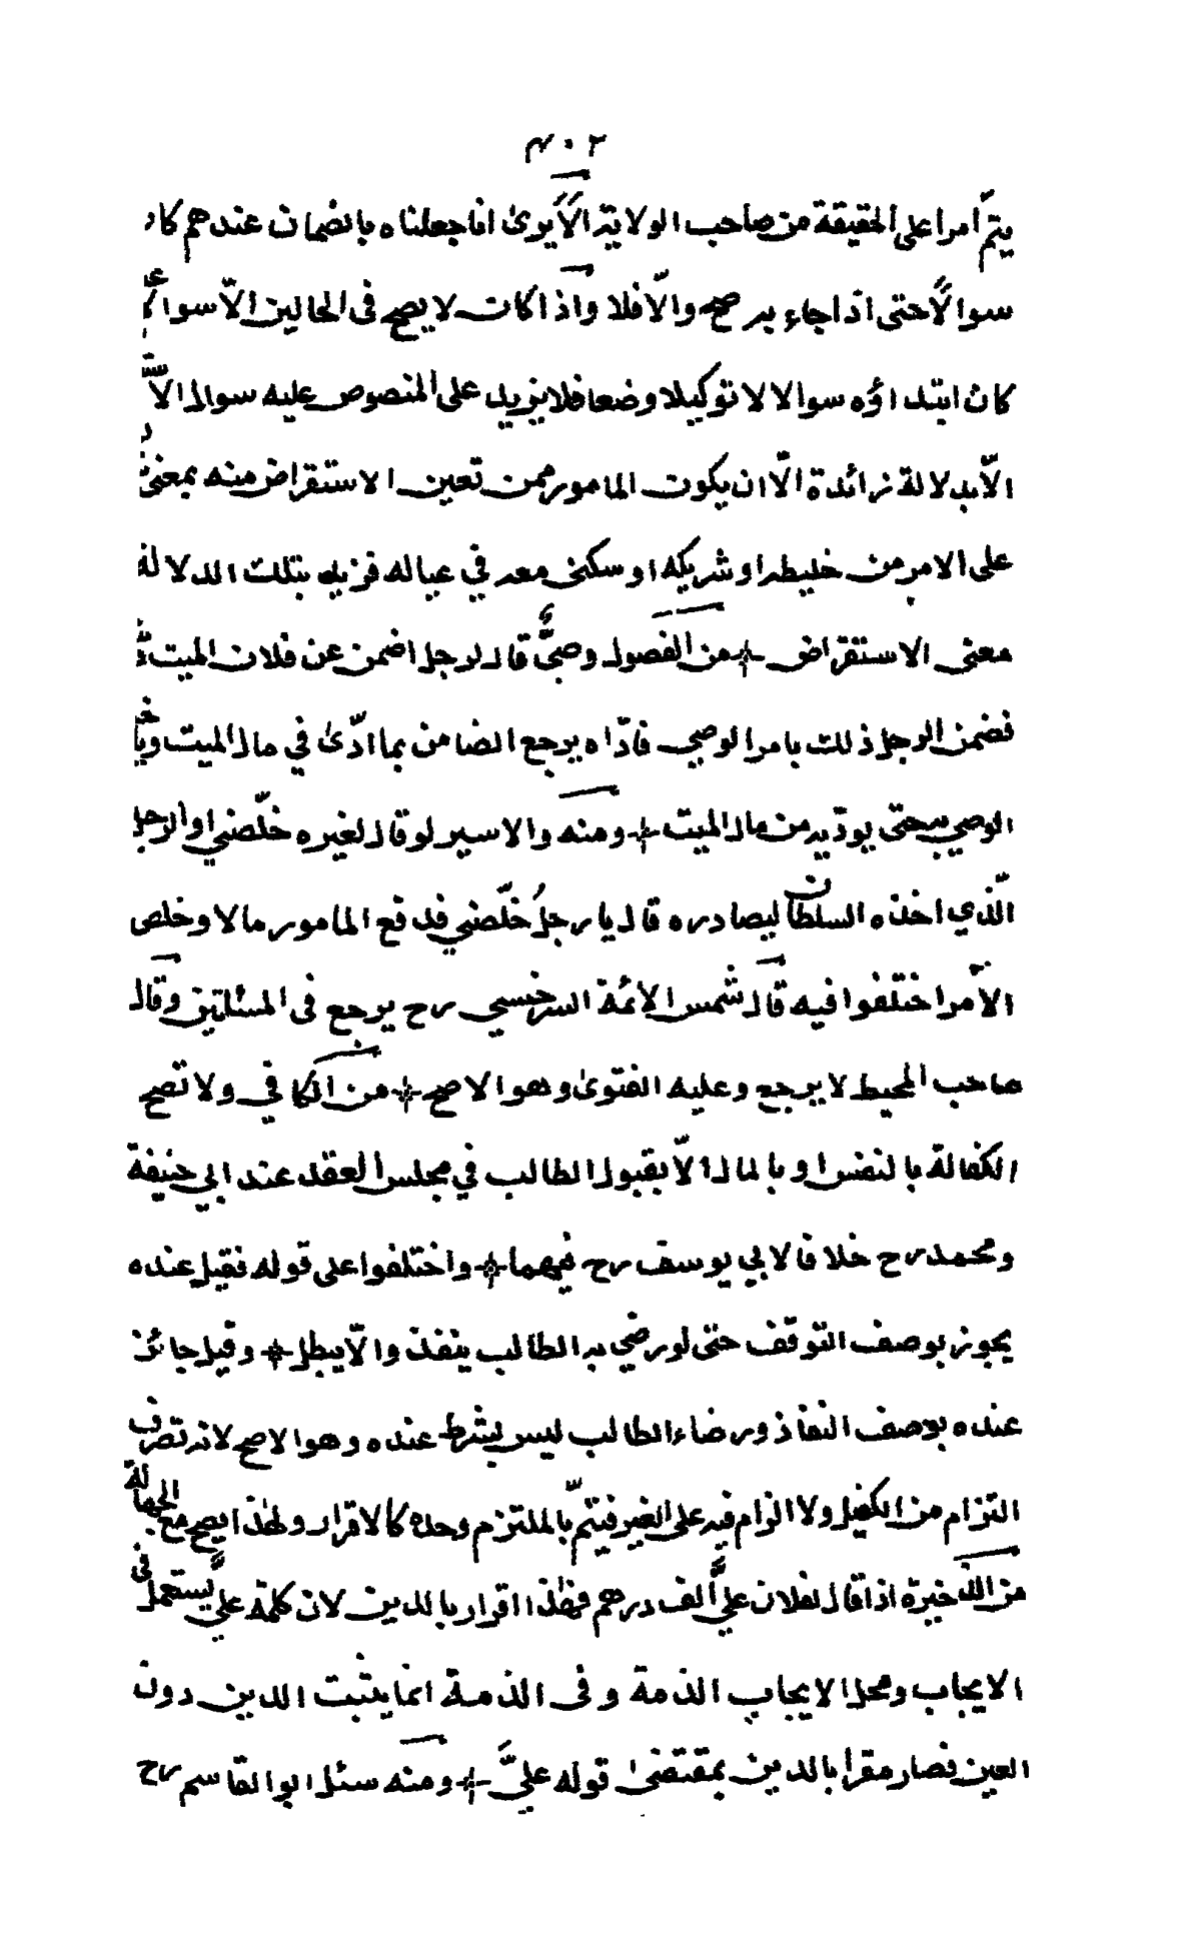 ٣٠٢
يتمّ أمرا على الحقيقة من صاحب الولاية الا يرى انا جعلناه بالضمان عندهم كان
سوالا حتى اذا جاء به صح والّا فلا واذا كان لا يصح فى الحالين الّا سوالا
كان ابتداؤه سوالا لا توكيلا وضعا فلا يزيد على المنصوص عليه سوال
الّا بدلالة زائدة الّا ان يكون المامور ممن تعين الاستقراض منه بمعنى
على الامر من خليطه او شريكه او سكنى معه في عياله فزيد بتلك الدلالة
معنى الاستقراض + من الفصول وصىٌّ قال لرجل اضمن عن فلان الميت
فضمن الرجل ذلك بامر الوصي فادّاه يرجع الضامن بما ادّى في مال الميت
الوصي حتى يودّيه من مال الميت + ومنه والاسير لو قال لغيره خلّصني او الرجل
الّذي اخذه السلطان ليصادره قال يا رجلُ خلّصني فدفع المامور مالا وخلص
الآمر اختلفوا فيه قال شمس الائمة السرخسي رح يرجع فى المسئلتين وقال
صاحب المحيط لا يرجع وعليه الفتوى وهو الاصح + من الكافي ولا تصح
الكفالة بالنفس او بالمال الّا بقبول الطالب في مجلس العقد عند ابي حنيفة
ومحمد رح خلافا لابي يوسف رح فيهما + واختلفوا على قوله فقيل عنده
يجوز بوصف التوقّف حتى لو رضي به الطالب ينفذ والّا يبطل + وقيل جائز
عنده بوصف النفاذ ورضاء الطالب ليس بشرط عنده وهو الاصح لانه تصرف
التزام من الكفيل ولا الزام فيه على الغير فيتمّ بالملتزم وحده كالاقرار ولهذا يصح مع الجهالة
من الذخيرة اذا قال لفلان عليَّ ألف درهم فهذا اقرار بالدين لان كلمة عليَّ يستعمل فى
الايجاب ومحل الايجاب الذمة وفى الذمة انما يثبت الدين دون
العين فصار مقرا بالدين بمقتضى قوله عليَّ + ومنه سئل ابو القاسم رح